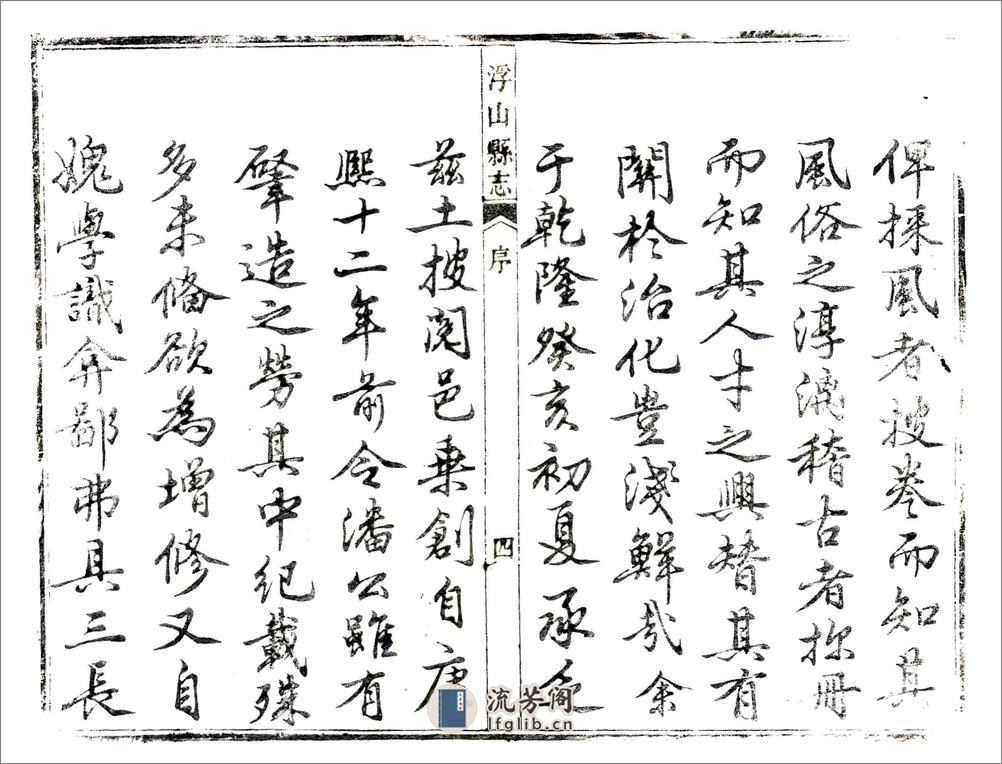 俾採風者披卷而知其
風俗之淳漓稽古者按冊
而知其人才之興替其有
關於治化豈淺鮮哉余
于乾隆癸亥初夏承乏
浮山縣志 序 四
茲土披閱邑乗創自康
熙十二年前令潘公雖有
肇造之勞其中紀載殊
多未俻欲為增修又自
媿學識弇鄙弗具三長
流芳阁
lfglib.cn